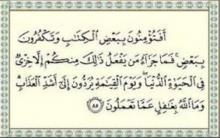 أَفَتُؤْمِنُونَ بِبَعْضِ الْكِتَابِ وَتَكْفُرُونَ
بِبَعْضٍ فَمَا جَزَاءُ مَن يَفْعَلُ ذَٰلِكَ مِنكُمْ إِلَّا خِزْيٌ
فِي الْحَيَاةِ الدُّنْيَا وَيَوْمَ الْقِيَامَةِ يُرَدُّونَ إِلَىٰ أَشَدِّ الْعَذَابِ
وَمَا اللَّهُ بِغَافِلٍ عَمَّا تَعْمَلُونَ ٨٥